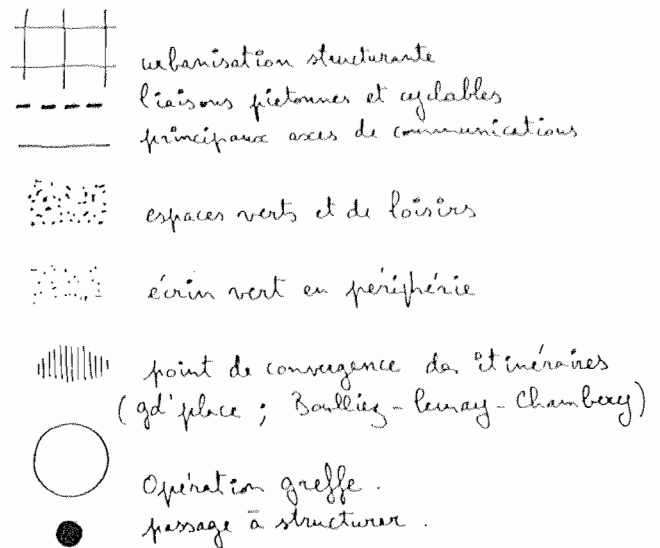 urbanisation structurante
liaisons piétonnes et cyclables
principaux axes de communications
espaces verts et de loisirs
écrin vert en périphérie
point de convergence des itinéraires
(gd' place ; - - Chambery)
Opération greffe.
passage à structurer.